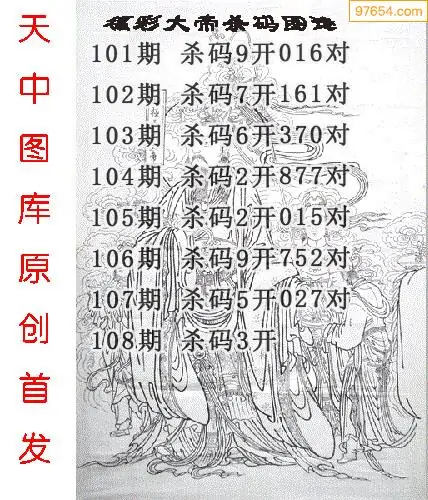 97654.com
彩大帝杀码图
101期 杀码9开016对
102期 杀码7开161对
103期 杀码6开370对
104期 杀码2开877对
105期 杀码2开015对
106期 杀码9开752对
107期 杀码5开027对
108期 杀码3开
天中图库原创首发